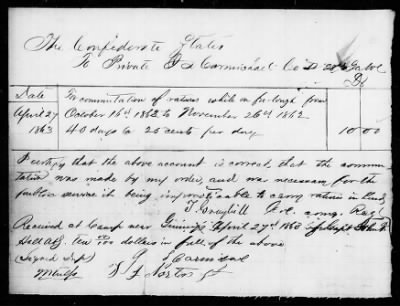 The Confederate States
To Private Carmichael Co D Ga Vol
Dr
Date In commutation of rations while on furlough from
April 27 October 16th 1862 to November 26th 1862
1863 40 days @ 25 cents per day 10 00
I certify that the above account is correct, that the commu
tation was made by my order, and was necessary for the
public service it being impracticable to carry rations in kind
T. Graybill Col. comg. Regt
Received at Camp near Guineys April 27th 1863 of Capt John
A Q M ten 00/100 dollars in full of the above
(Signed Dup) Carmichael